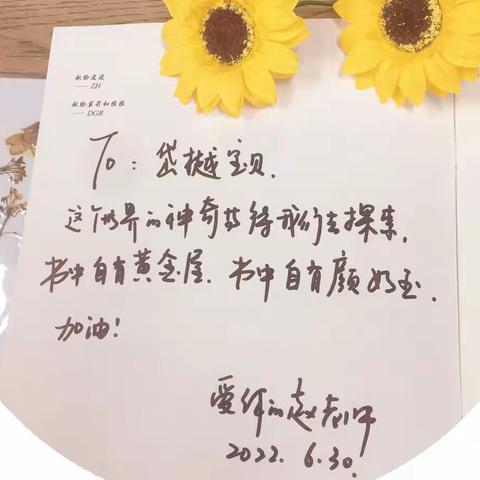 献给凌波
—— ZH
献给莫莉和拉拉
—— DGB
To：岱樾宝贝.
这个世界的神奇等待我们去探索,
书中自有黄金屋、书中自有颜如玉.
加油！
爱你的赵老师
2022. 6.30.